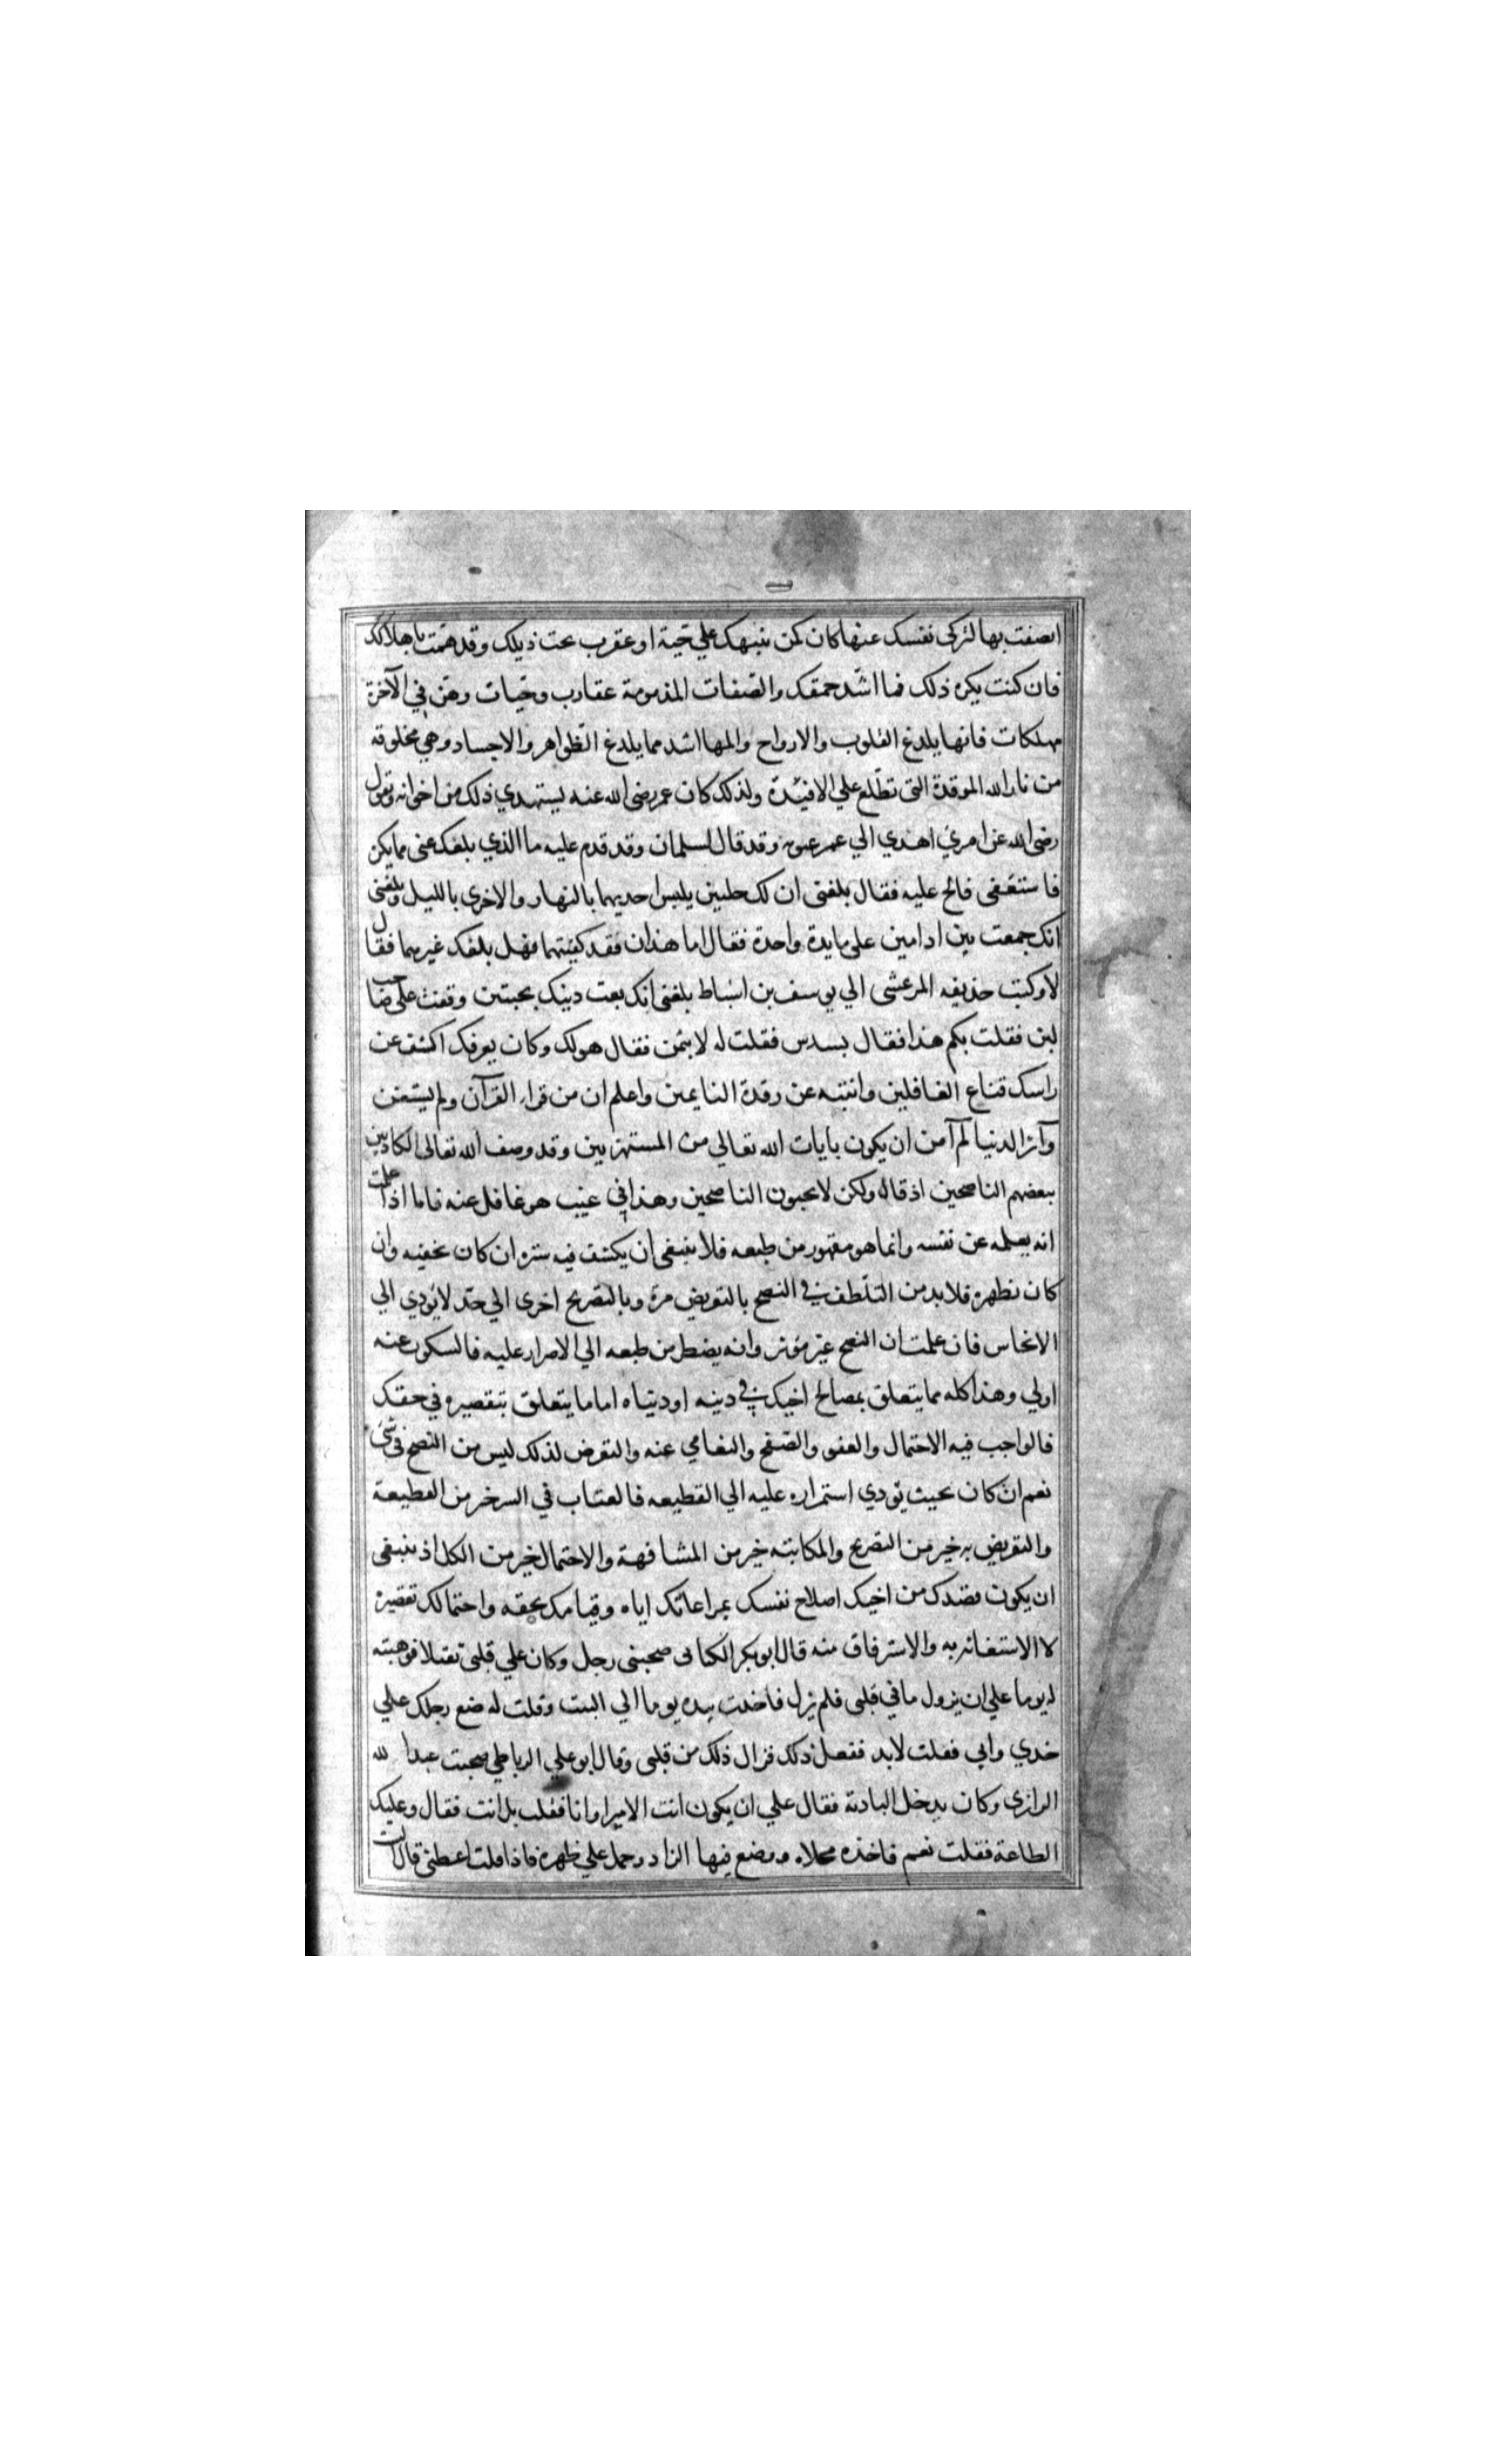 اتصفت بها لتزكى نفسك عنها كان كمن ينبهك علي حية او عقرب تحت ذيلك وقد همت باهلاكك
فان كنت يكره ذلك فما اشد حمقك والصفات المذمومة عقارب وحيات وهن في الآخرة
مهلكات فانها يلدغ القلوب والارواح والمها اشد مما يلدغ الظواهر والاجساد وهي مخلوقه
من نار الله الموقدة التى تطلع علي الافئدة ولذلك كان عمر رضى الله عنه يستهدي ذلك من اخوانه ويقول
رضى الله عن امرئ اهدي الي عمر عيوبه وقد قال لسلمان وقد قدم عليه ما الذي بلغك عنى مما يكره
فاستعفى فالح عليه فقال بلغنى ان لك حلتين يلبس احديهما بالنهار والاخرى بالليل وبلغنى
انك جمعت بين ادامين على مايدة واحدة فقال اما هذان فقد كفيتهما فهل بلغك غيرهما فقال
لا وكتب حذيفه المرعشى الي يوسف بن اسباط بلغنى انك بعت دينك بحبتين وقفت على صاحب
لبن فقلت بكم هذا فقال بسدس فقلت له لا بثمن فقال هو لك وكان يعرفك اكشف عن
راسك قناع الغافلين وانتبه عن رقدة النايمين واعلم ان من قراء القرآن ولم يستغن
وآثر الدنيا لم آمن ان يكون بايات الله تعالي من المستهزيين وقد وصف الله تعالى الكاذبين
ببعضهم الناصحين اذ قال ولكن لا تحبون الناصحين وهذا في عيب هو غافل عنه فاما اذا علمت
انه يعلمه عن نفسه وانما هو مقهور من طبعه فلا ينبغى ان يكشف فيه ستره ان كان يخفيه وان
كان يظهره فلابد من التلطف في النصح بالتعريض مرة وبالتصريح اخرى الي حد لا يؤدي الي
الايحاش فان علمت ان النصح غير مؤثر وانه يضطر من طبعه الي الاصرار عليه فالسكوت عنه
اولي وهذا كله مما يتعلق بمصالح اخيك في دينه او دنياه اما ما يتعلق بتقصيره في حقك
فالواجب فيه الاحتمال والعفو والصفح والتعامي عنه والتعرض لذلك ليس من النصح في شئ
نعم ان كان بحيث يؤدي استمراره عليه الي القطيعه فالعتاب في السر خير من القطيعة
والتعريض به خير من التصريح والمكاتبة خير من المشافهة والاحتمال خير من الكل اذ ينبغى
ان يكون قصدك من اخيك اصلاح نفسك بمراعاتك اياه وقيامك بحقه واحتمالك تقصيره
لا الاستغاثه به والاسترفاق منه قال ابو بكر الكتانى صحبنى رجل وكان علي قلبى ثقيلا فوهبته
له يوما علي ان يزول ما في قلبى فلم يزل فاخذت بيده يوما الي البيت وقلت له ضع رجلك علي
خدي وابي فقلت لابد ففعل ذلك فزال ذلك من قلبى وقال ابو علي الرباطي صحبت عبد الله
الرازى وكان يدخل البادية فقال علي ان يكون انت الامير او انا فقلت بل انت فقال وعليك
الطاعة فقلت نعم فاخذ مخلاه ووضع فيها الزاد وحمل علي ظهره فاذا قلت اعطنى قال